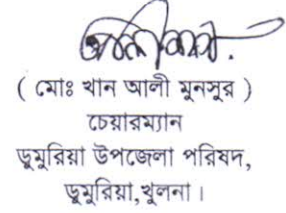 ( মোঃ খান আলী মুনসুর )
চেয়ারম্যান
ডুমুরিয়া উপজেলা পরিষদ,
ডুমুরিয়া,খুলনা।